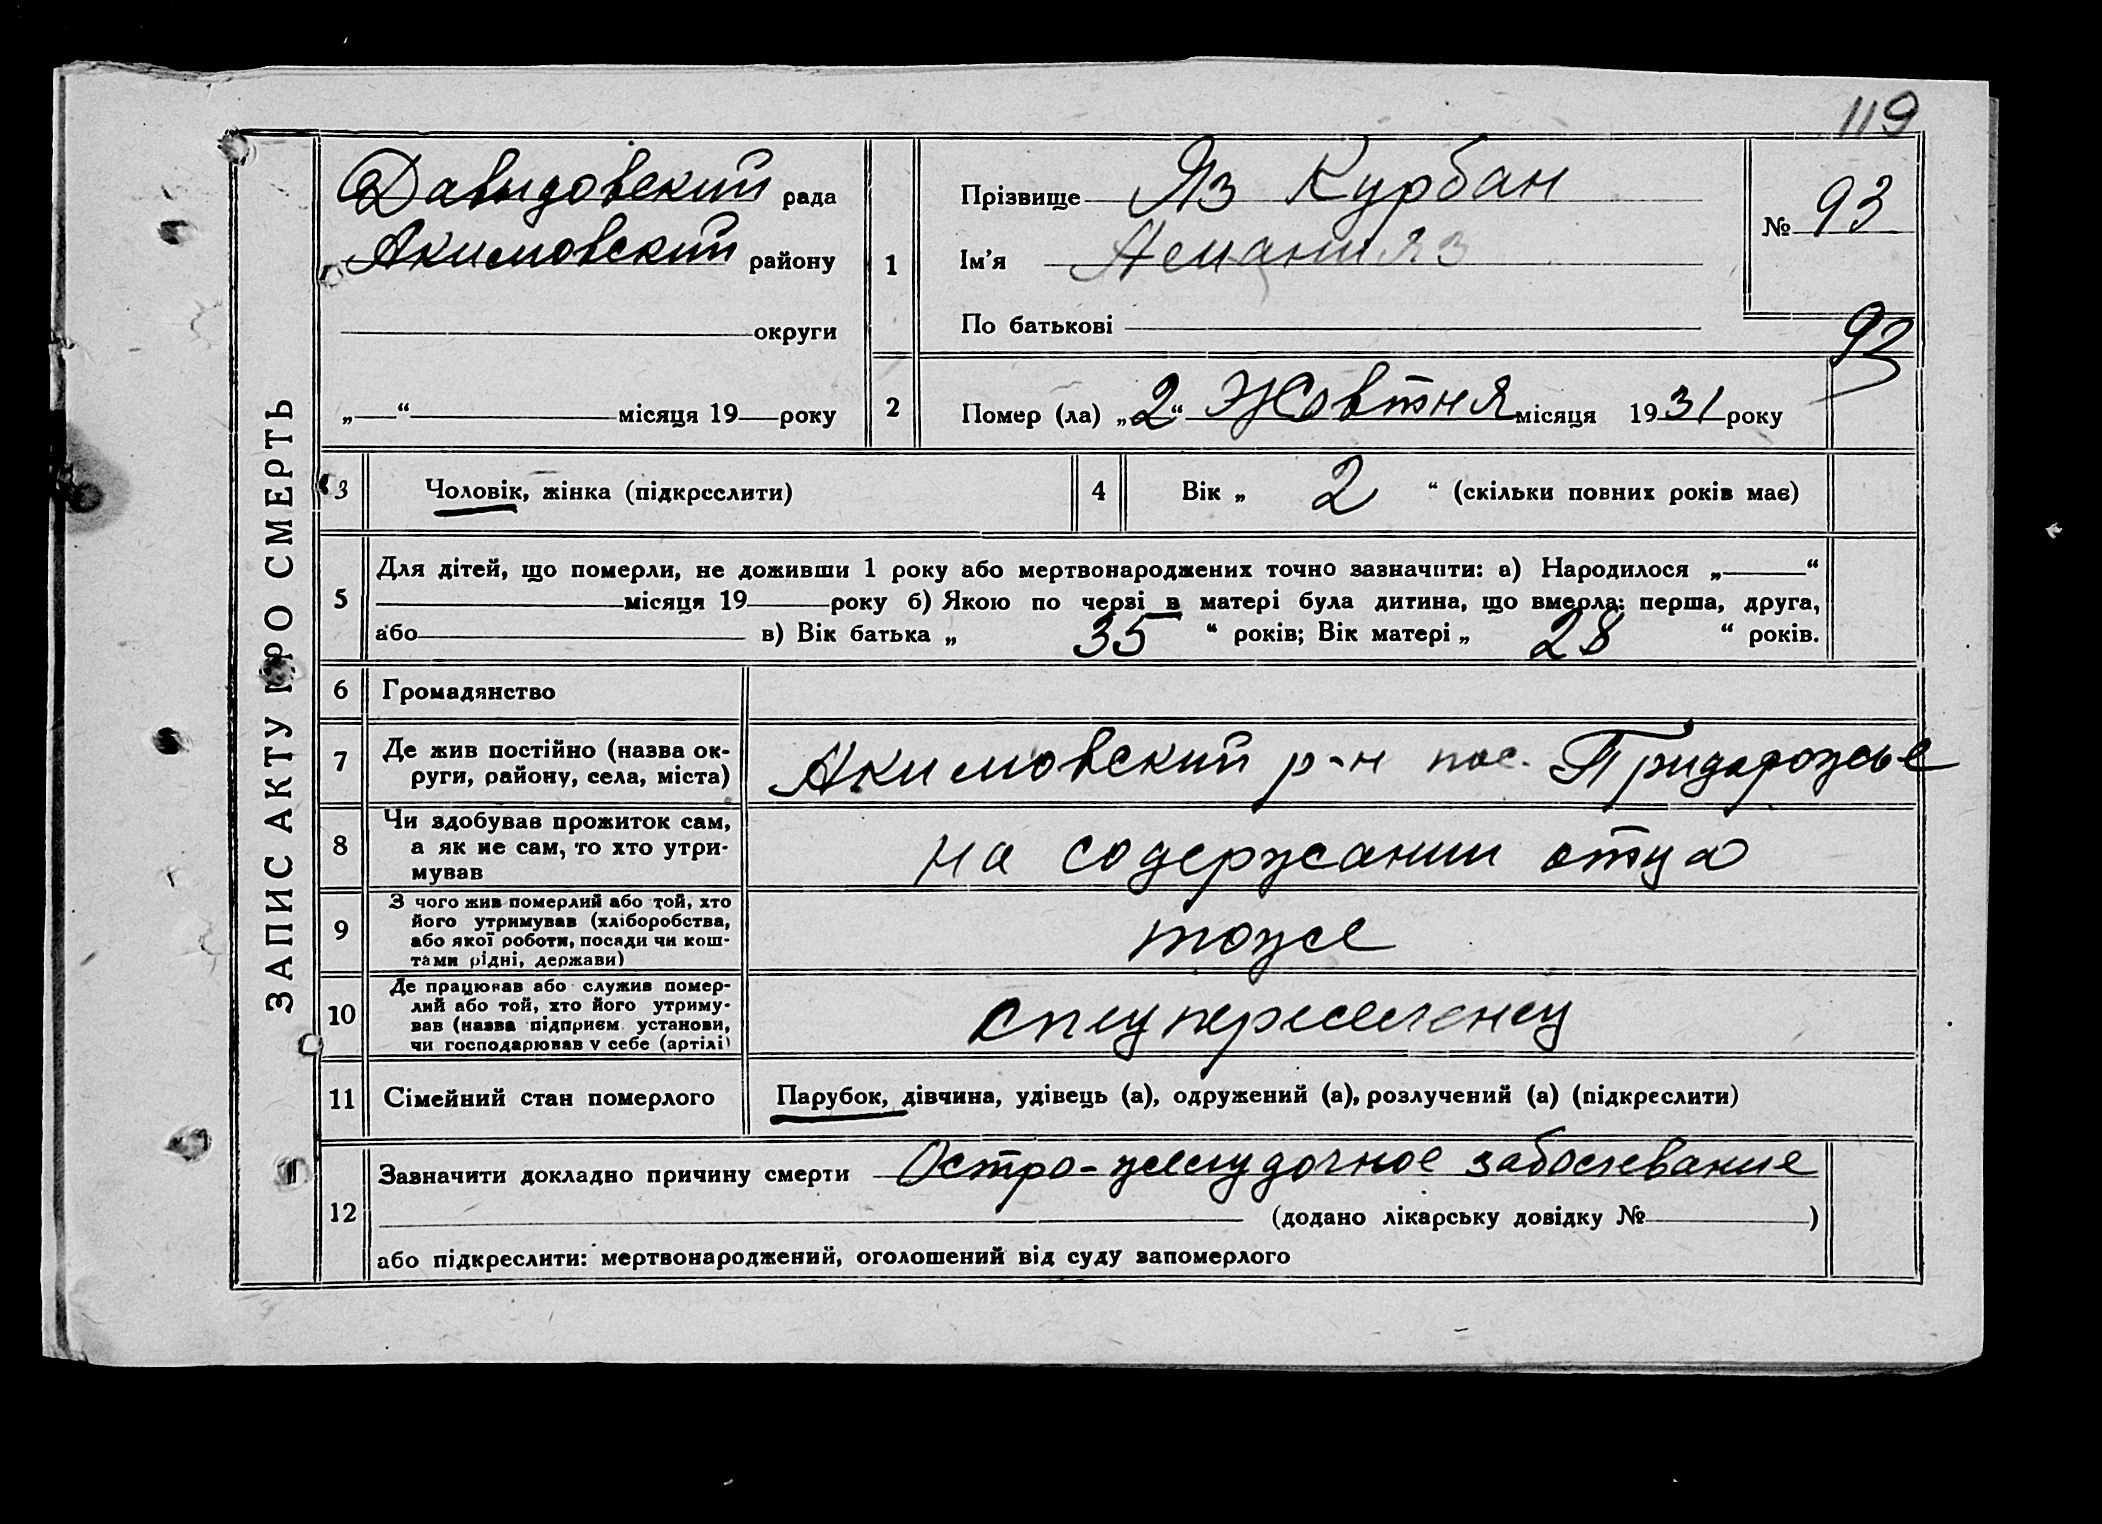 119
ЗАПИС АКТУ ПРО СМЕРТЬ
Давыдовский рада
Акимовский району
округи
„ “ місяця 19 року
1
Прізвище Яз Курбан
Ім’я
По батькові
№ 93
93
2
Помер (ла) „2“ Жовтня місяця 1931 року
3
Чоловік, жінка (підкреслити)
4
Вік „ 2 “ (скільки повних років має)
5
Для дітей, що померли, не доживши 1 року або мертвонароджених точно зазначити: а) Народилося „ “
місяця 19 року б) Якою по черзі в матері була дитина, що вмерла: перша, друга,
або в) Вік батька „ 35 “ років; Вік матері „ 28 “ років.
6
Громадянство
7
Де жив постійно (назва ок-
руги, району, села, міста)
Акимовский р-н пос. Придорожье
8
Чи здобував прожиток сам,
а як не сам, то хто утри-
мував
на содержании отца
9
З чого жив померлий або той, хто
його утримував (хліборобства,
або якої роботи, посади чи кош-
тами рідні, держави)
тоже
10
Де працював або служив помер-
лий або той, хто його утриму-
вав (назва підприєм. установи,
чи господарював у себе (артілі)
спецпереселенец
11
Сімейний стан померлого
Парубок, дівчина, удівець (а), одружений (а), розлучений (а) (підкреслити)
12
Зазначити докладно причину смерти Остро-желудочное заболевание
(додано лікарську довідку № )
або підкреслити: мертвонароджений, оголошений від суду запомерлого